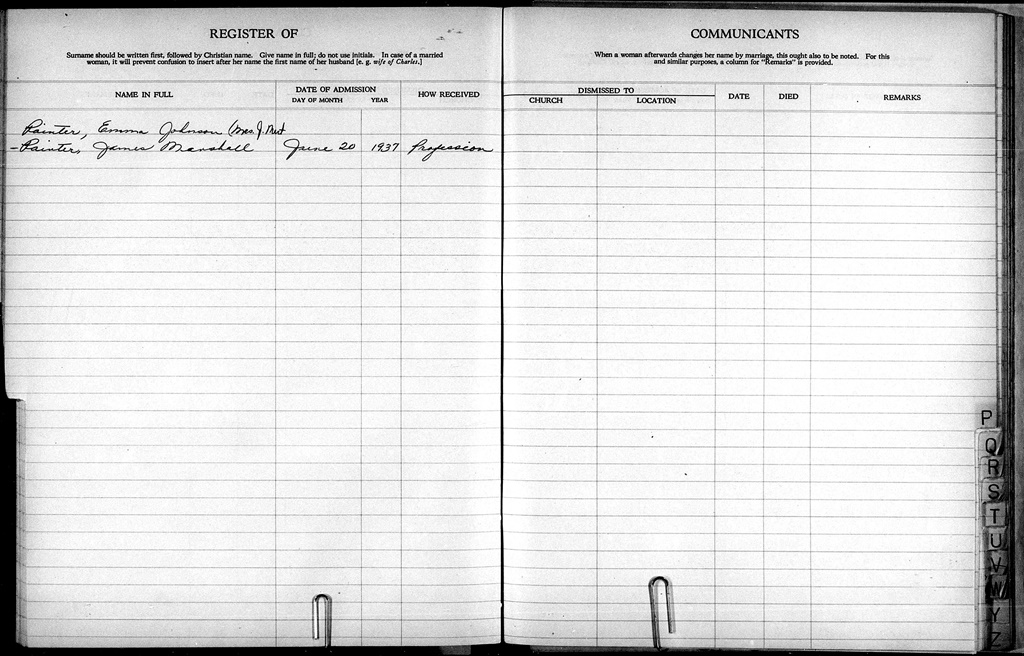 REGISTER OF
Surname should be written first, followed by Christian name. Give name in full; do not use initials. In case of a married
woman, it will prevent confusion to insert after her name the first name of her husband [e. g. wife of Charles.]
NAME IN FULL
DATE OF ADMISSION
DAY OF MONTH YEAR
HOW RECEIVED
Painter, Emma Johnson (Mrs. J.
Painter, James Marshall June 20 1937 Profession
COMMUNICANTS
When a woman afterwards changes her name by marriage, this ought also to be noted. For this
and similar purposes, a column for "Remarks" is provided.
DISMISSED TO
CHURCH LOCATION
DATE
DIED
REMARKS
P
Q
R
S
T
U
V
W
Y
Z